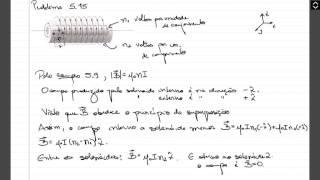 Problema 5.15
n₁ voltas por unidade
de comprimento
n₂ voltas por un.
de comp.
Pelo exemplo 5.9, |B⃗| = μ₀nI
O campo produzido pelo solenoide interno é na direção -ẑ.
externo é " " +ẑ
Visto que B⃗ obedece o princípio da superposição
Assim, o campo interno a solenoide menor B⃗ = μ₀In₁(-ẑ) + μ₀In₂(ẑ)
B⃗ = μ₀I(n₂-n₁)ẑ
Entre os solenoides: B⃗ = μ₀In₂ẑ. E
o campo é B⃗=0.